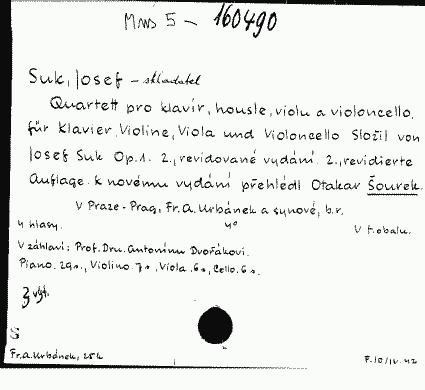 Mms 5 - 160490
Suk, Josef - skladatel
Quartett pro klavír, housle, violu a violoncello.
für Klavier, Violine, Viola und Violoncello Složil von
Josef Suk Op.1. 2., revidované vydání. 2., revidierte
Auflage. K novému vydání přehlédl Otakar Šourek.
V Praze - Prag, Fr. A. Urbánek a synové, b.r.
4 hlasy. 4° V f. obalu.
V záhlaví: Prof. Dru. Antonínu Dvořákovi.
Piano. 29 s., Violino. 7 s., Viola. 6 s., Cello. 6 s.
3 výt.
S
Fr. A. Urbánek, 25 k F. 10/IV. 42